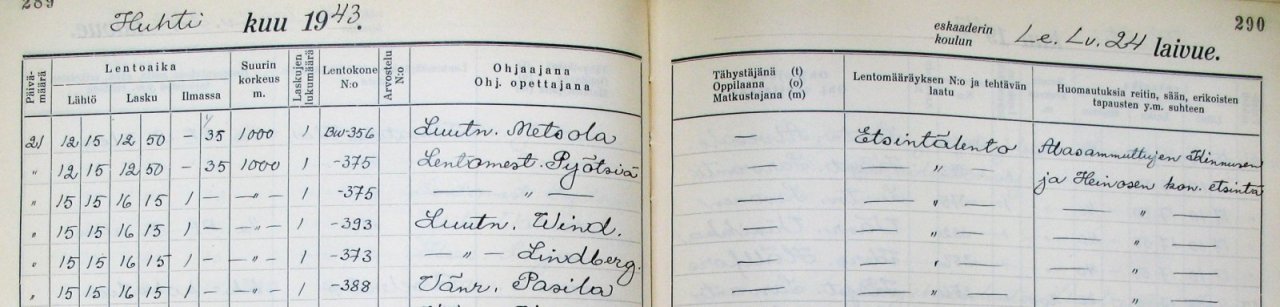 289
Huhti kuu 1943.
Päivä-määrä
Lentoaika
Lähtö Lasku Ilmassa
Suurin korkeus m.
Laskujen lukumäärä
Lentokone N:o
Arvostelu N:o
Ohjaajana
Ohj. opettajana
21 12 15 12 50 35 1000 1 BW-356 Luutn. Metsola
" 12 15 12 50 – 35 1000 1 -375 Lentomest. Pyötsiä
" 15 15 16 15 1 – –"– 1 -375 — " —
" 15 15 16 15 1 – –"– 1 -393 Luutn. Wind.
" 15 15 16 15 1 – –"– 1 -373 — " — Lindberg.
" 15 15 16 15 1 – –"– 1 -388 Vänr. Pasila
290
eskaaderin
koulun Le.Lv.24 laivue.
Tähystäjänä (t)
Oppilaana (o)
Matkustajana (m)
Lentomääräyksen N:o ja tehtävän
laatu
Huomautuksia reitin, sään, erikoisten
tapausten y.m. suhteen
— Etsintälento Alasammuttujen Kinnusen
— " — ja Heinosen kon. etsintä
— — " — — " —
— — " — — " —
— — " — — " —
— — " — — " —